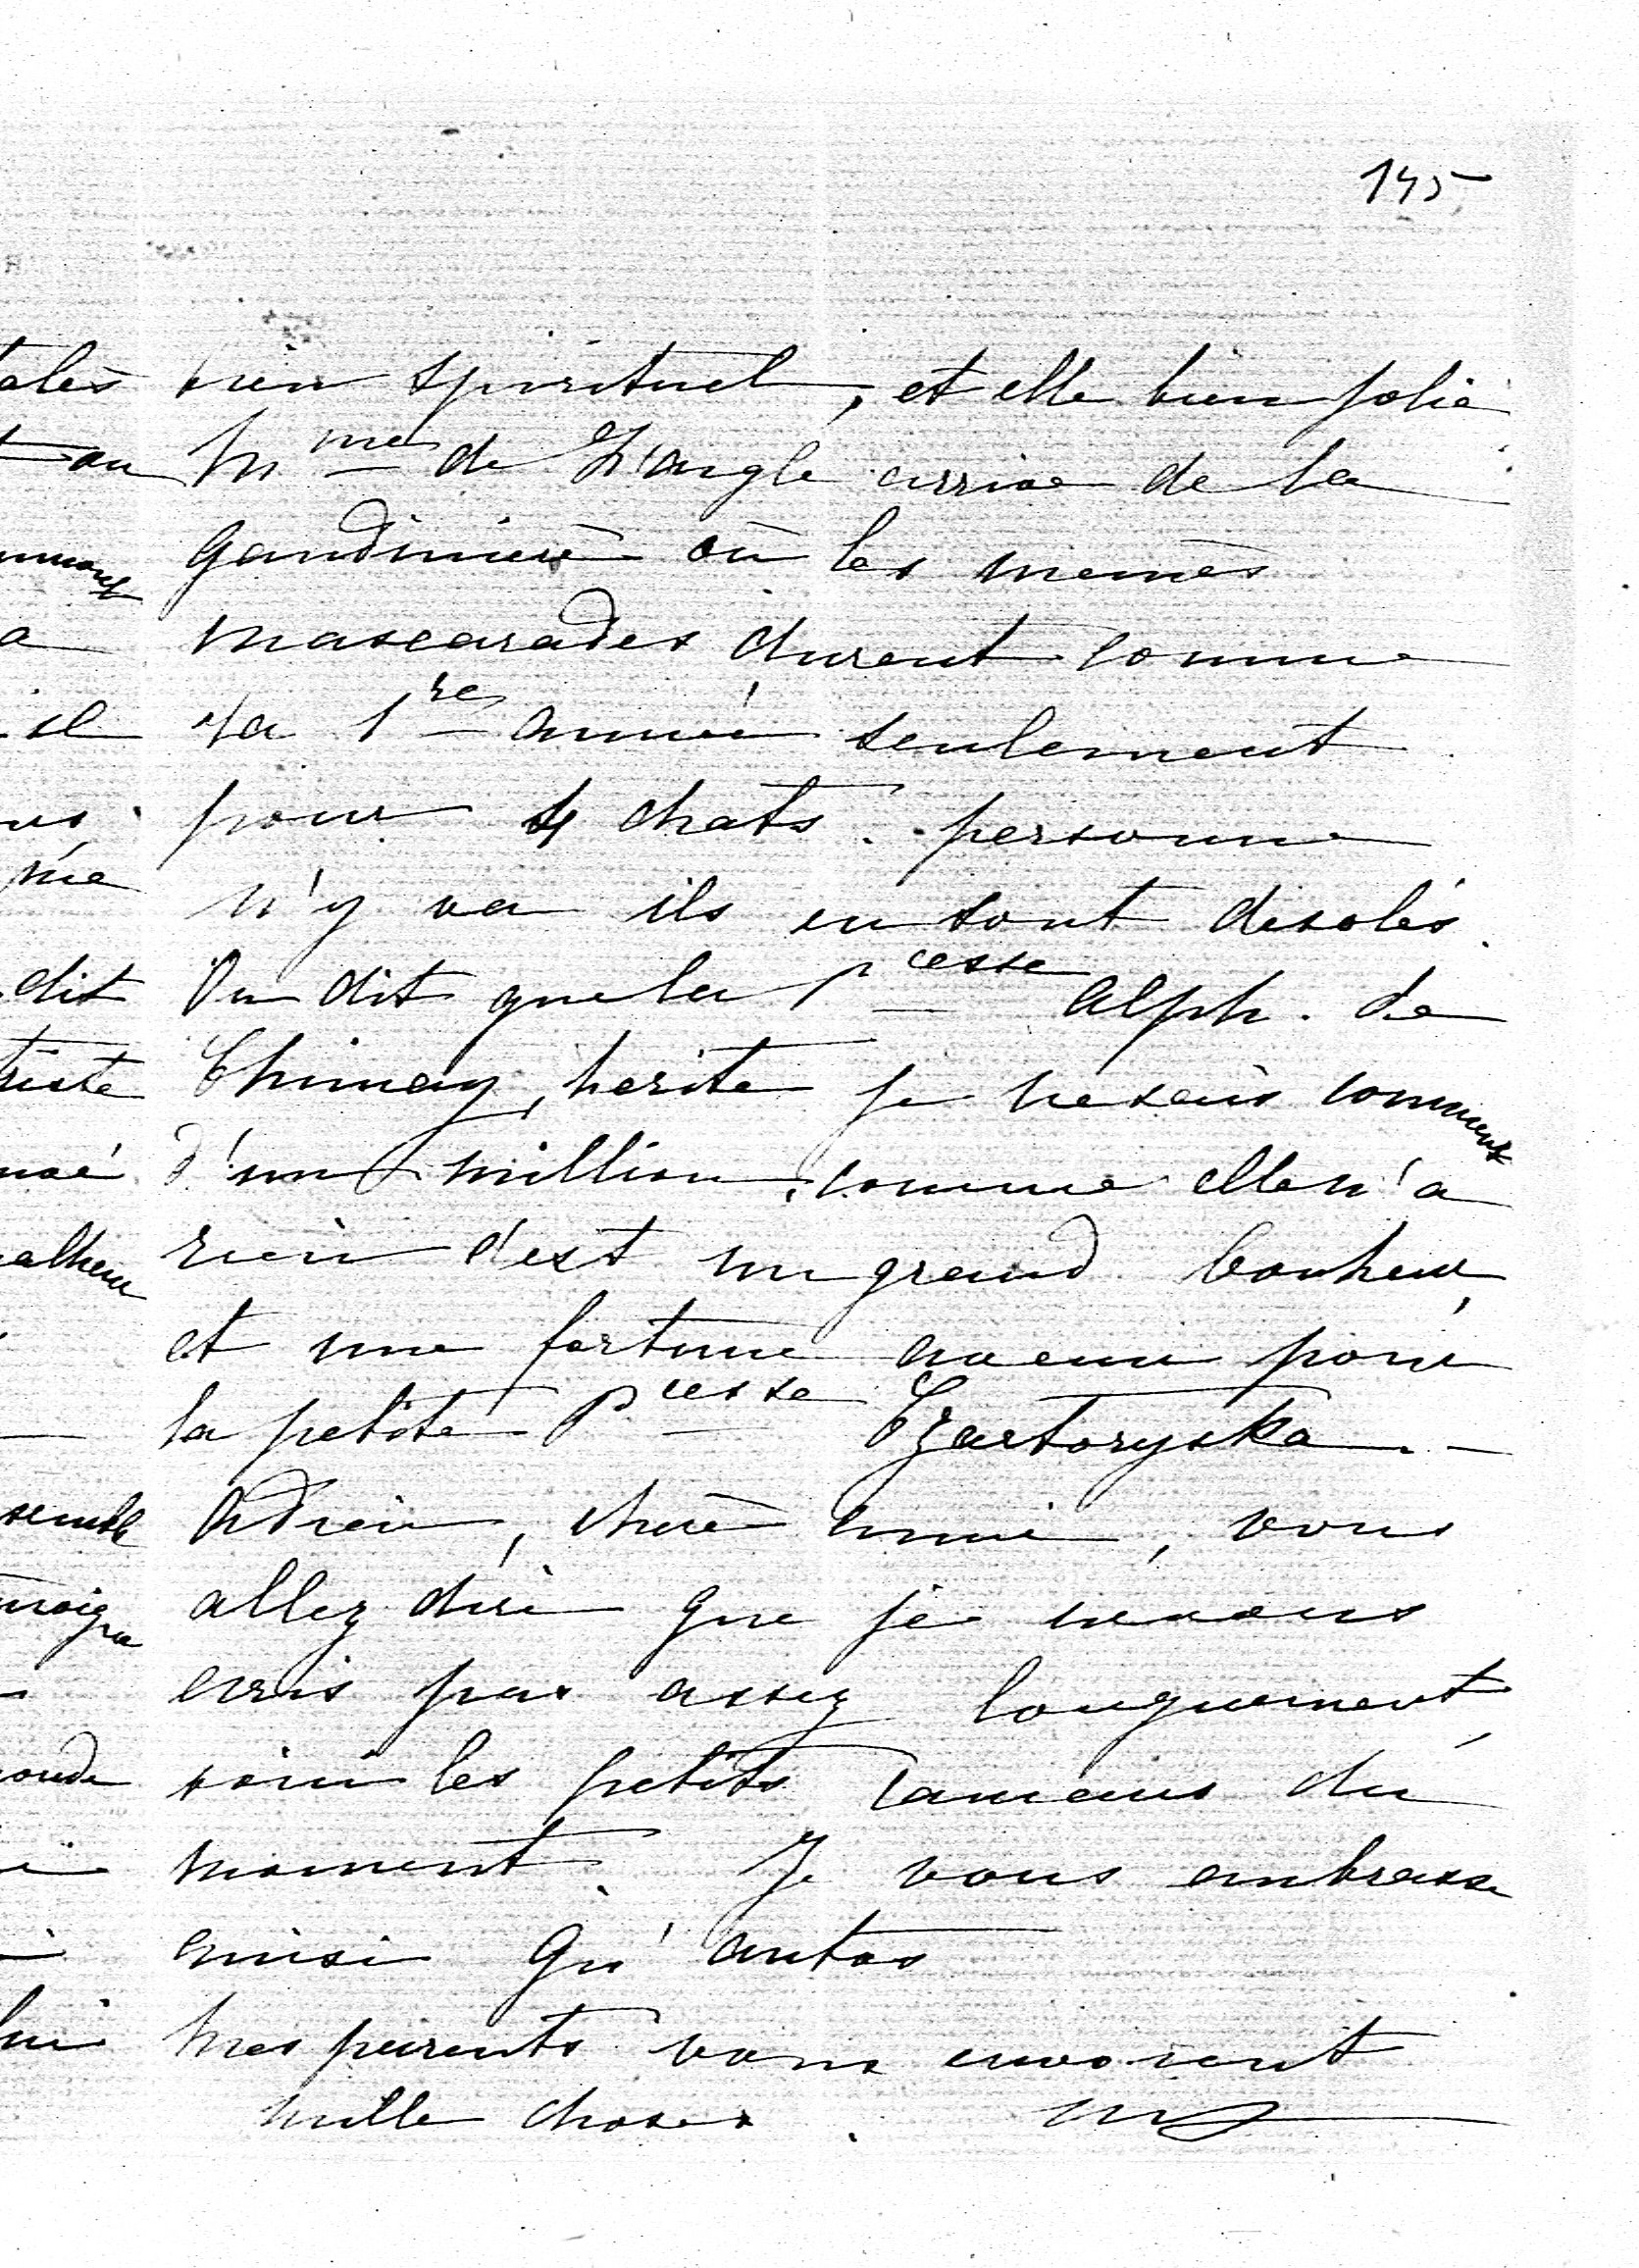 145
bien spirituel, et elle bien jolie
Mme de L'angle arrive de la
Gandinière où les mêmes
mascarades durent comme
la 1re année seulement
pour 4 chats. personne
n'y va ils en sont desolés.
On dit que la Pcesse Alph. de
Chimay, herite je ne sais comment
d'un million, comme elle n'a
rien c'est un grand bonheur,
et une fortune avenir pour
la petite Pcesse Czartoryska. -
Adieu, chère amie, vous
allez dire que je ne vous
ecris pas assez longuement,
voici les petits cancans du
moment. Je vous embrasse
ainsi qu'
mes parents vous envoient
mille choses.